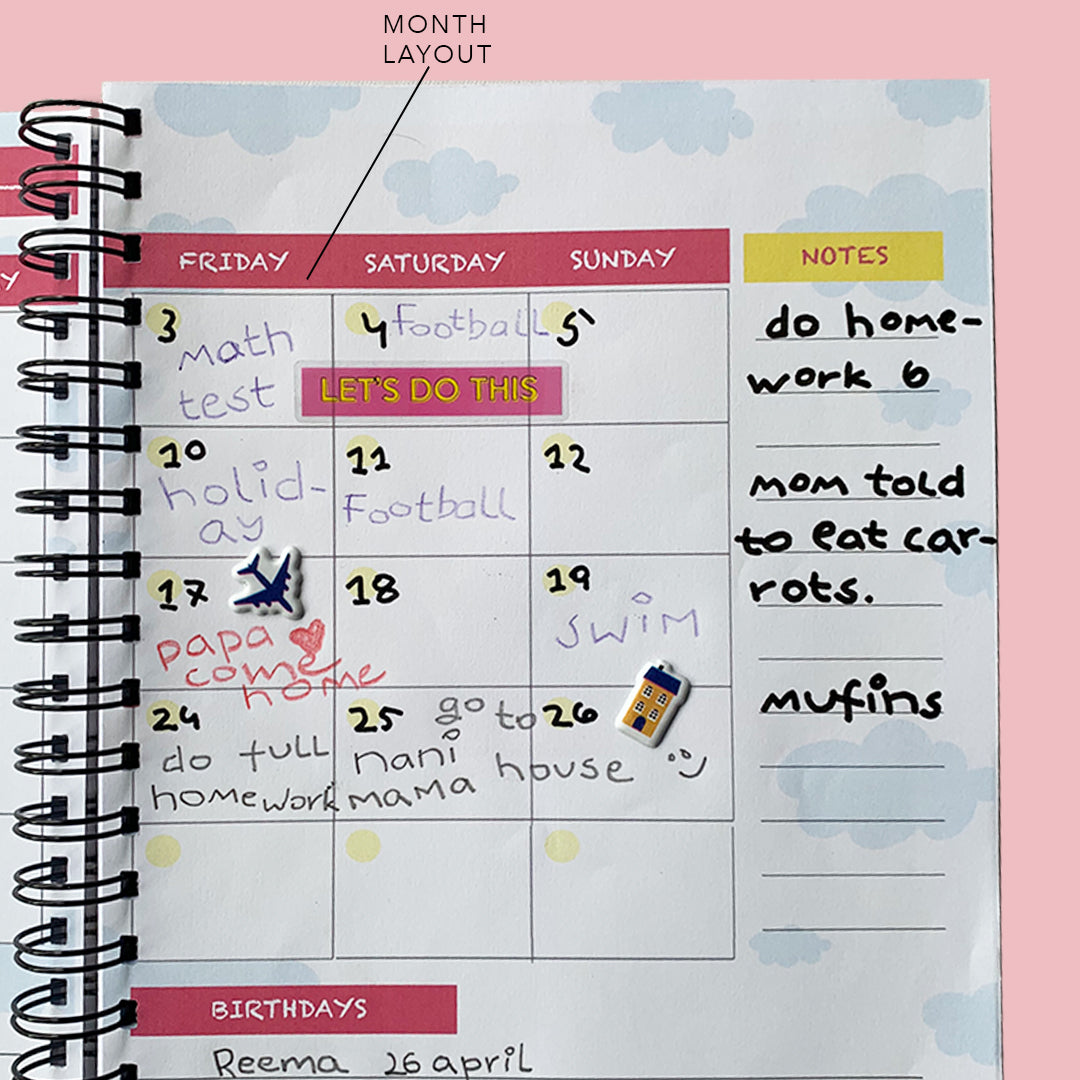 MONTH
LAYOUT
Y
FRIDAY SATURDAY SUNDAY
3 4 football 5
math
test
LET'S DO THIS
10 11 12
holid-
ay
Football
17 18 19
papa
come
home
swim
24 25 go to 26
do full nani house
homework mama
NOTES
do home-
work 6
mom told
to eat car-
rots.
mufins
BIRTHDAYS
Reema 26 april